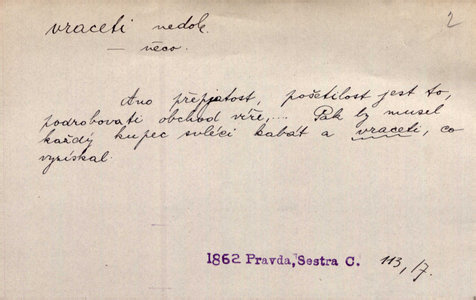 vraceti nedok.
— něco.
2
Ano přepjatost, pošetilost jest to,
podrobovati obchod víře,... Pak by musel
každý kupec svléci kabát a vraceti, co
vyzískal.
1862 Pravda, Sestra C. 113,/7.